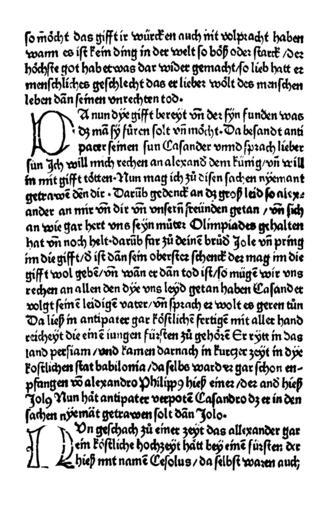 so möcht das gifft ir würcken auch nit volpracht haben
wann es ist kein ding in der welt so böß oder starck / der
höchste got hab etwas dar wider gemacht / so lieb hatt er
menschliches geschlecht das er lieber wölt des menschen
leben dañ seinen vnrechten tod.
DA nun dye gifft bereyt vñ der syn funden was
dz mã sy füren solt vñ möcht. Da besandt anti
pater seinen sun Casander vnnd sprach lieber
sun Ich will mich rechen an alexand dem künig / vñ will
in mit gifft tötten. Nun mag ich zů disen sachen nyemant
getrawen deñ dir. Darüb gedenck an dz groß leid so alex⸗
ander an mir vñ dir vñ vnserñ freünden getan / vñ sich
an wie gar hert vns seyn můter Olimpiades gehalten
hat vñ noch helt. darüb far zů deinẽ brůd Jole vñ pring
im die gifft / ď ist dañ sein oberster schenck der mag im die
gifft wol gebẽ / vñ wañ er dañ tod ist / so müge wir vns
rechen an allen den dye vns leyd getan haben Casander
volgt seinẽ leidigẽ vater / vñ sprach er wolt es geren tůn
Da ließ in antipater gar köstlichẽ fertigẽ mit aller hand
reicheyt die einẽ iungen fürsten zů gehöret Er rytt in das
land persiam / vnd kamen darnach in kurczer zeyt in dye
kostlichen stat babilonia / da selbs ward er gar schon en⸗
pfangen võ alexandro Philippꝯ hieß einer / der and hieß
Jolꝯ Nun hãt antipater verpotẽ Casandro dz er in den
sachen nyemãt getrawen solt dañ Jolo.
NUn geschach zů einer zeyt das allexander gar
ein köstliche hochzeyt hãtt bey einẽ fürsten der
hieß mit namẽ Cesolus / da selbst waren auch